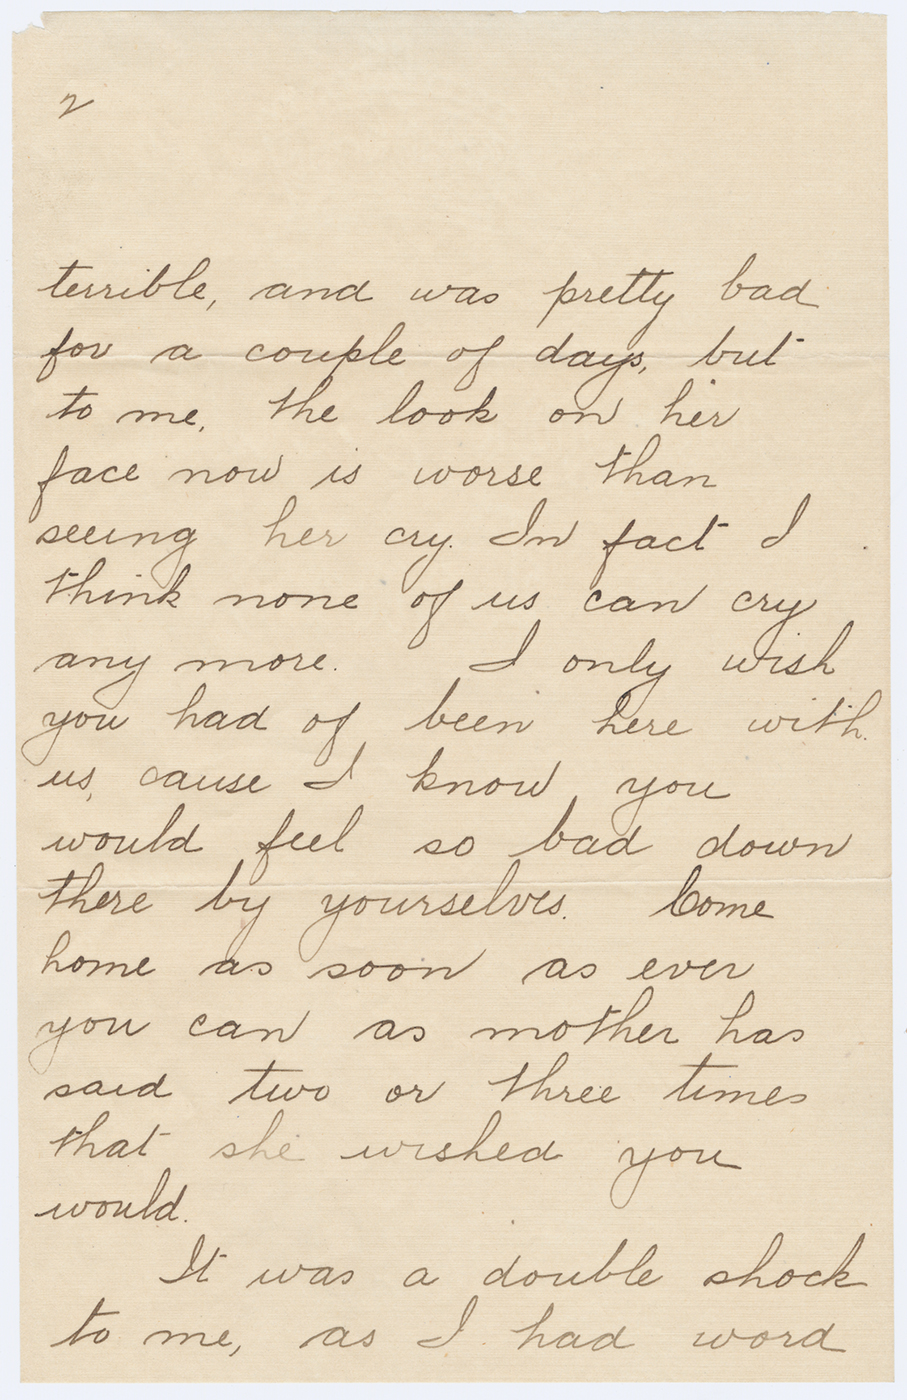 2
terrible, and was pretty bad
for a couple of days, but
to me, the look on her
face now is worse than
seeing her cry. In fact I
think none of us can cry
any more. I only wish
you had of been here with
us, cause I know you
would feel so bad down
there by yourselves. Come
home as soon as ever
you can as mother has
said two or three times
that she wished you
would.
It was a double shock
to me, as I had word